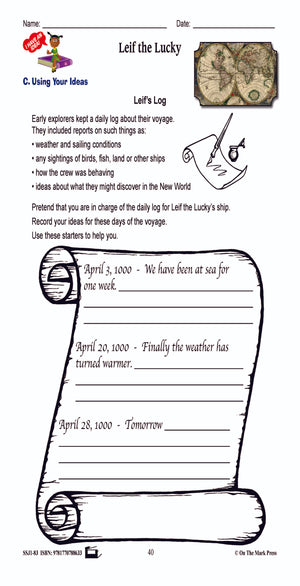 Name: Date:
Leif the Lucky
I HAVE AN IDEA!
C. Using Your Ideas
Leif's Log
Early explorers kept a daily log about their voyage.
They included reports on such things as:
• weather and sailing conditions
• any sightings of birds, fish, land or other ships
• how the crew was behaving
• ideas about what they might discover in the New World
Pretend that you are in charge of the daily log for Leif the Lucky's ship.
Record your ideas for these days of the voyage.
Use these starters to help you.
April 3, 1000 - We have been at sea for
one week.
April 20, 1000 - Finally the weather has
turned warmer.
April 28, 1000 - Tomorrow
SSJ1-83 ISBN: 9781770788633 40 © On The Mark Press